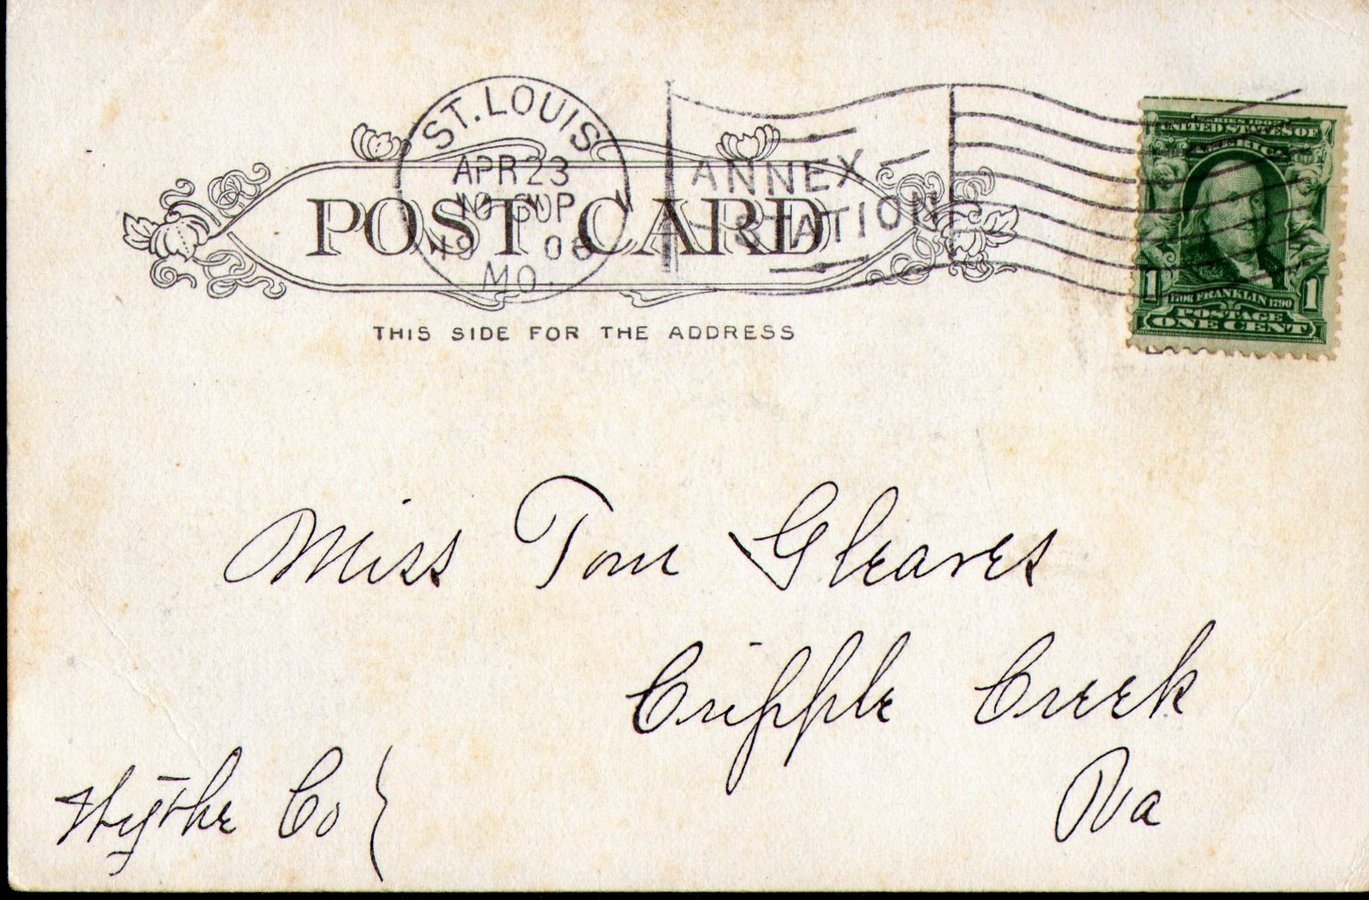 ST. LOUIS
APR 23
10 30 P
19 06
MO.
ANNEX
STATION
POST CARD
THIS SIDE FOR THE ADDRESS
SERIES 1902
UNITED STATES OF
AMERICA
1 1706 FRANKLIN 1790 1
POSTAGE
ONE CENT
Miss Tom Gleaves
Cripple Creek
Wythe Co
Va